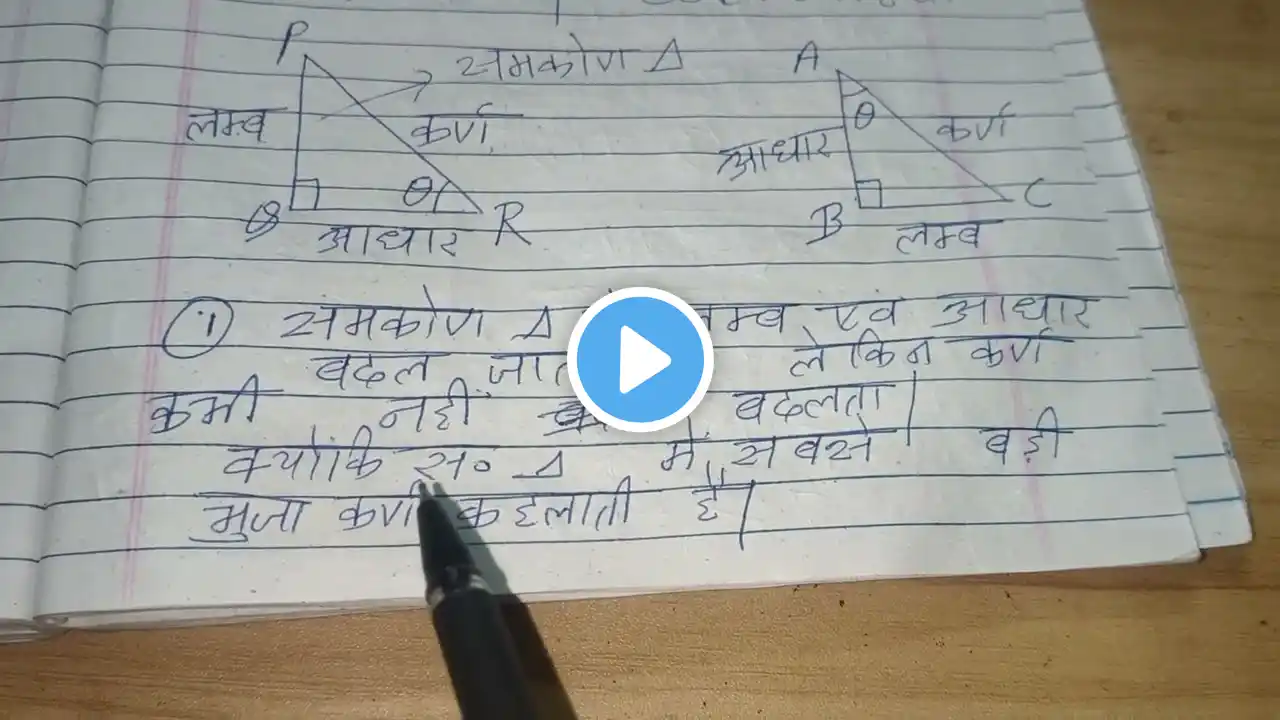 P
समकोण Δ
A
लम्ब
कर्ण
θ
Q
R
आधार
θ
कर्ण
आधार
B
C
लम्ब
(i) समकोण Δ लम्ब एवं आधार
बदल लेकिन कर्ण
कभी नहीं बदलता।
क्योंकि स० Δ में सबसे बड़ी
भुजा कर्ण कहलाती है।